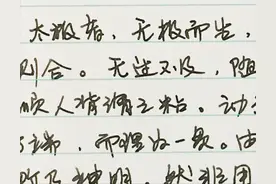 太极者，无极而生，
则合。无过不及，随
顺人背谓之粘。动
而理为一贯。由
阶及神明，然非用